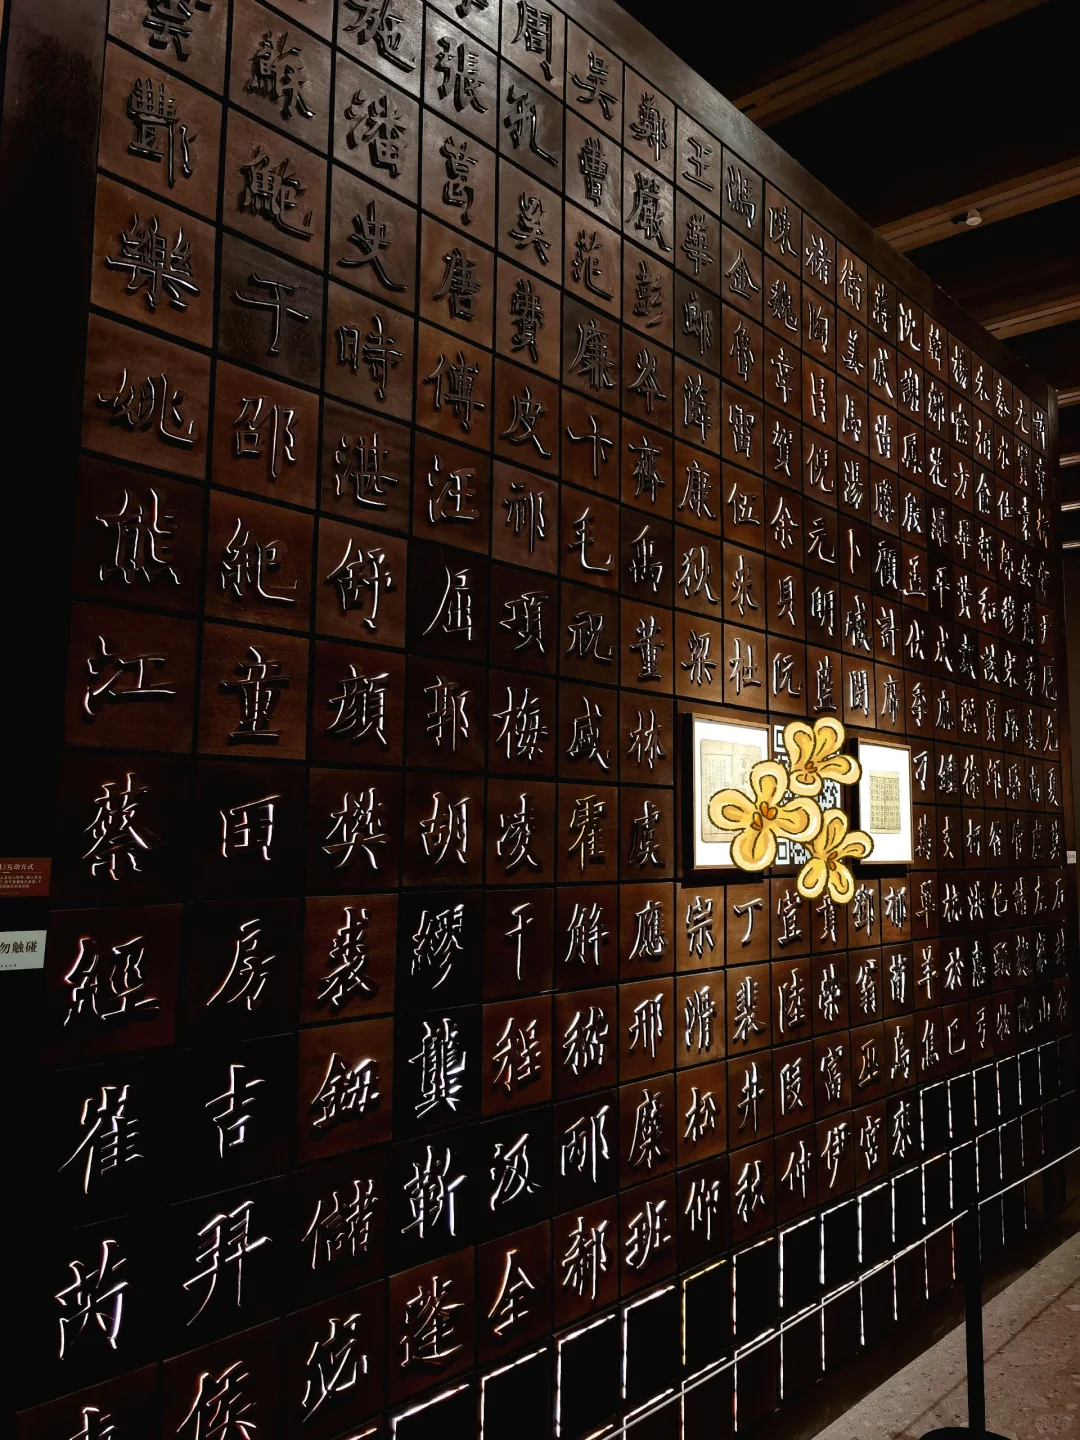 周吳鄭王馮陳褚衛蔣沈韓楊朱秦尤許
施張孔曹嚴華金魏陶姜戚謝鄒喻柏水竇章
蘇潘葛奚范彭郎魯韋昌馬苗鳳花方俞任袁柳
酆鮑史唐費廉岑薛雷賀倪湯滕殷羅畢郝鄔安常
樂于時傅皮卞齊康伍余元卜顧孟平黃和穆蕭尹
姚邵湛汪祁毛禹狄米貝明臧計伏成戴談宋茅龐
熊紀舒屈項祝董梁杜阮藍閔席季麻強賈路婁危
江童顏郭梅盛林刁鍾徐邱駱高夏
蔡田樊胡凌霍虞萬支柯昝管盧莫
經房裘繆干解應宗丁宣賁鄧郁單杭洪包諸左石
崔吉鈕龔程嵇邢滑裴陸榮翁荀羊於惠甄麴家封
芮羿儲靳汲邴糜松井段富巫烏焦巴弓牧隗山谷
侯宓蓬全郗班仰秋仲伊宮
互动方式
勿触碰